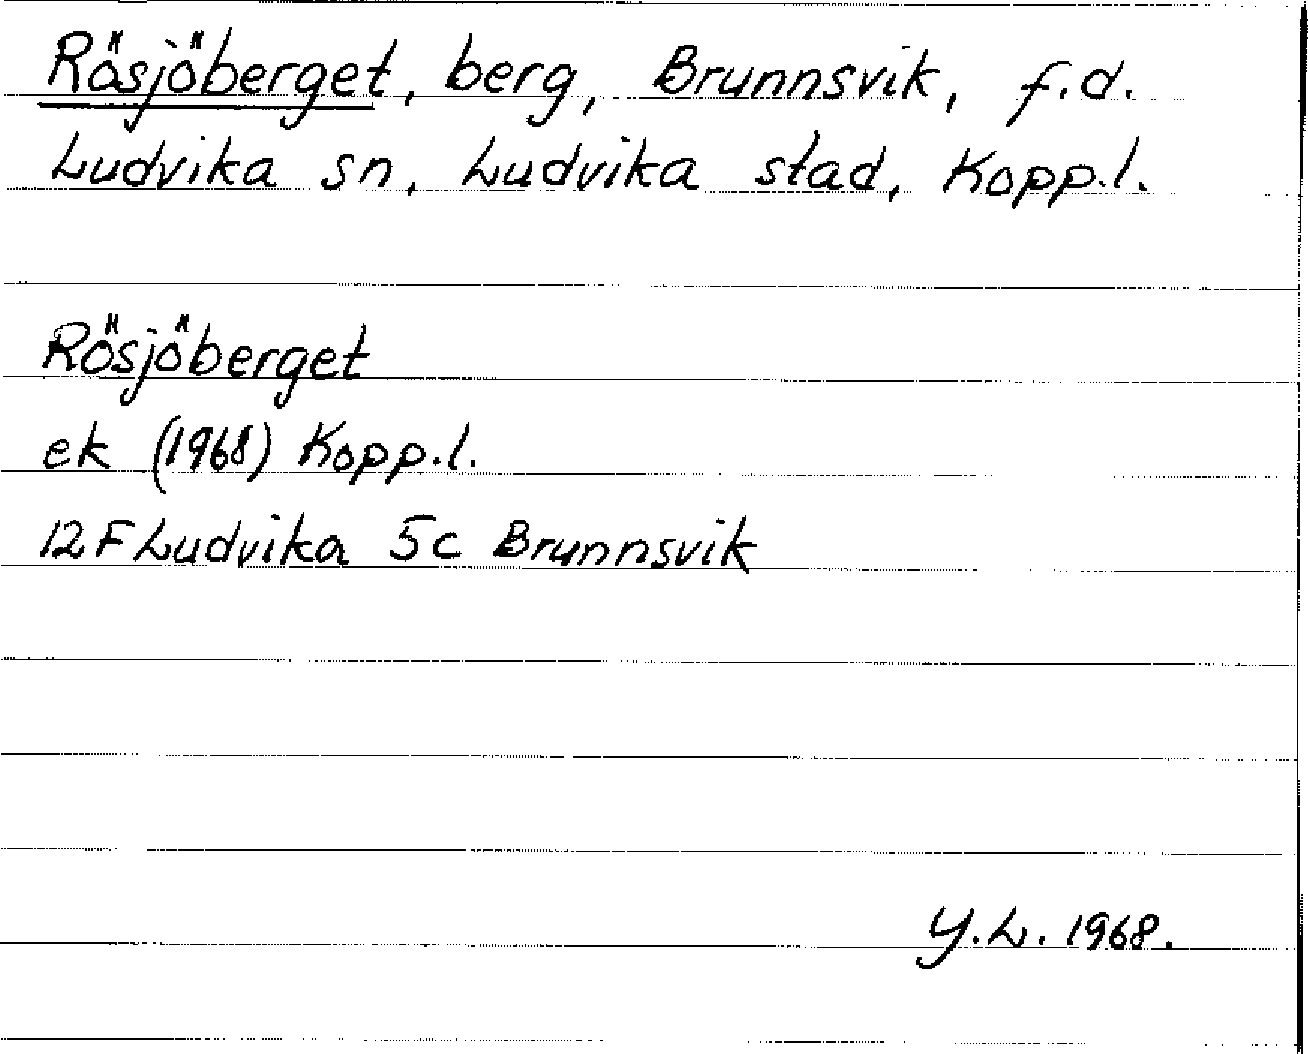 Rösjöberget, berg, Brunnsvik, f.d.
Ludvika sn, Ludvika stad, Kopp.l.
Rösjöberget
ek (1968) Kopp.l.
12F Ludvika 5c Brunnsvik
Y.L. 1968.